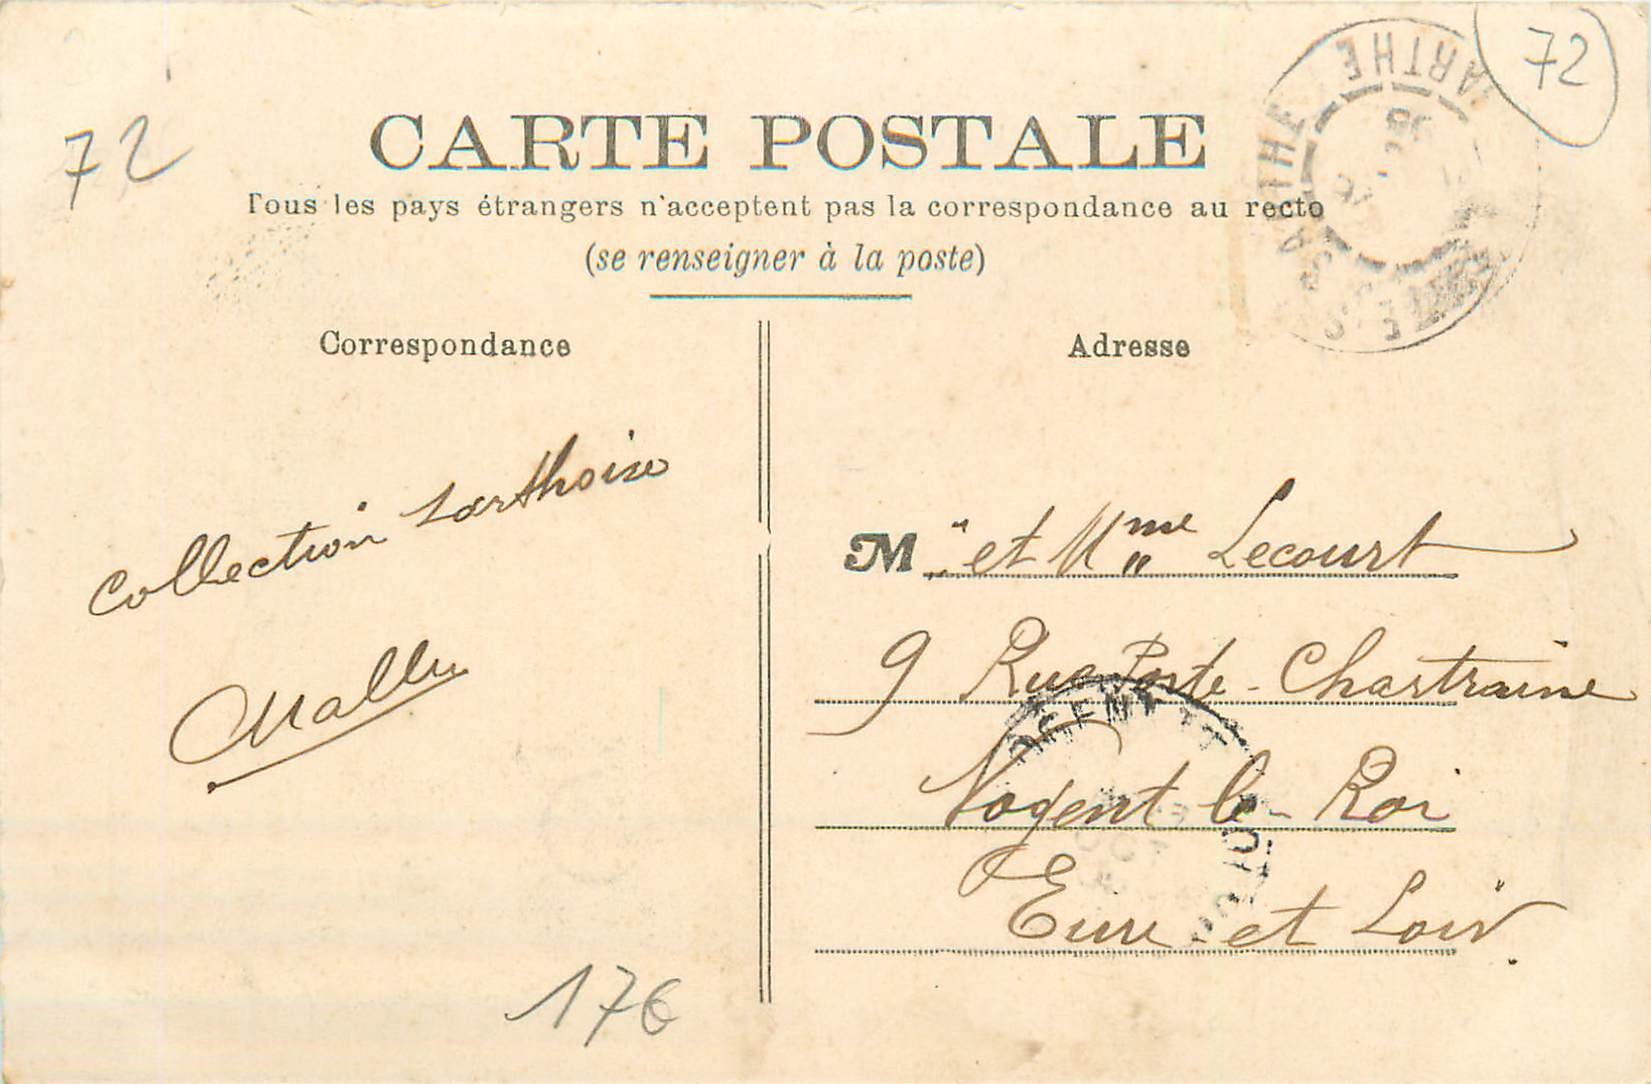 72
72
CARTE POSTALE
Tous les pays étrangers n'acceptent pas la correspondance au recto
(se renseigner à la poste)
Correspondance
Adresse
ARTHE
Collection Sarthoise
M " et Mme Lecourt
9 Rue Porte-Chartraine
Nogent le-Roi
Eure-et Loir
17€